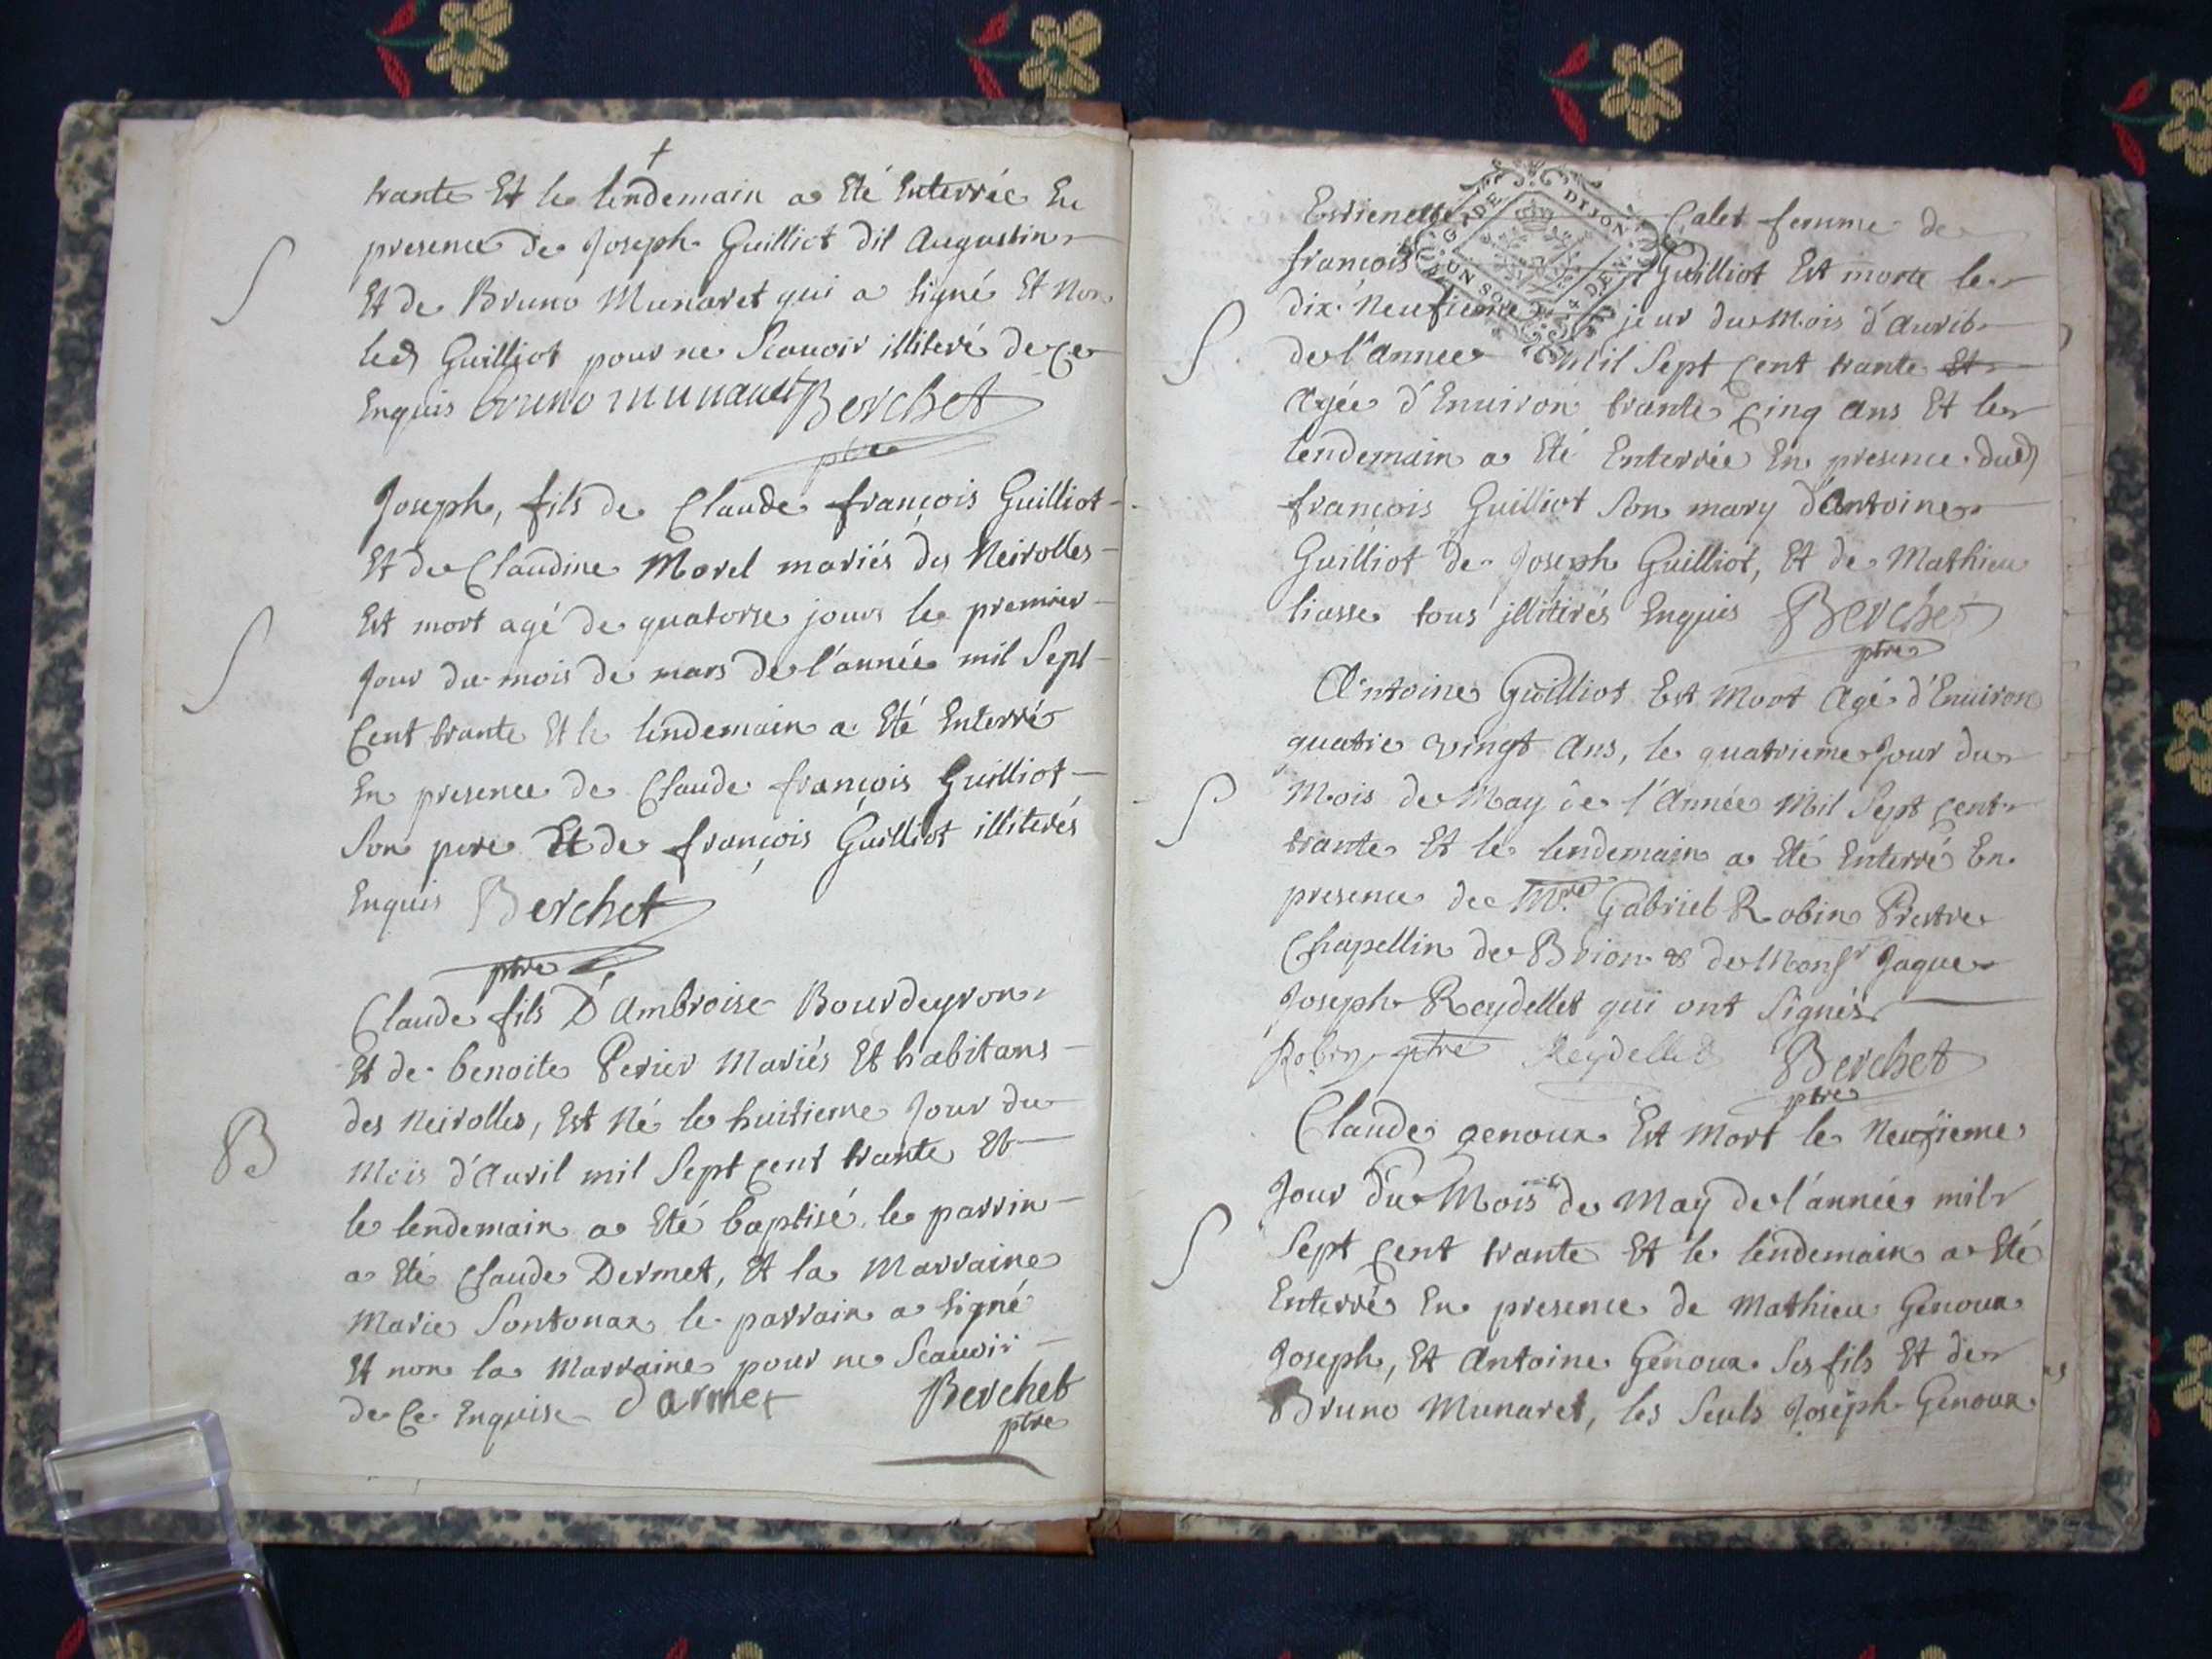 †
trante Et le lendemain a Eté Enterrée En
presence de Joseph Guilliot dit Augustin
Et de Bruno Munaret qui a signé Et Non
led Guilliot pour ne Scauoir illiteré de ce
Enquis bruno munaret Berchet
ptre
Joseph, fils de Claude françois Guilliot
Et de Claudine Morel mariés des Neirolles
Est mort agé de quatorse jours le premier
Jour du mois de mars de l'année mil Sept
Cent trante Et le lendemain a Eté Enterré
En presence de Claude françois Guilliot
Son pere Et de françois Guilliot illiterés
Enquis Berchet
ptre
Claude fils D'Ambroise Bourdeyron
Et de benoite Perier Mariés Et habitans
des Neirolles, Est Né le huitieme Jour du
B
Mois d'Auril mil Sept Cent trante Et
le lendemain a Eté baptisé, le parrin
a Eté Claude Dermet, Et la Marraine
Marie Sontonax le parrain a signé
Et non la Marraine pour ne Scauoir
de Ce Enquise darmet Berchet
ptre
Estienette Calet femme de
françois Guilliot Est morte le
GNDE DIJON
UN SOL 4 DEN
dix Neufieme jour du Mois d'Auril
de l'Année Mil Sept Cent trante Et
Agée d'Enuiron trante Cinq Ans Et le
lendemain a Eté Enterrée En presence dud
françois Guilliot Son mary d'Antoine
Guilliot de Joseph Guilliot, Et de Mathieu
liasse tous illitirés Enquis Berchet
ptre
Antoine Guilliot Est Mort Agé d'Enuiron
quatre vingt Ans, le quatrieme Jour du
Mois de May de l'Année Mil Sept Cent
trante Et le lendemain a Eté Enterré En
presence de Mre Gabriel Robin Prestre
Chapellin de Brion & de Monsr Jaque
Joseph Reydellet qui ont Signés
Robin ptre Reydellet Berchet
ptre
Claude genoux Est Mort le Neufieme
Jour du Mois de May de l'année mil
Sept Cent trante Et le lendemain a Eté
Enterré En presence de Mathieu Genoux
Joseph, Et Antoine Genoux Ses fils Et de
Bruno Munaret, les Seuls Joseph Genoux